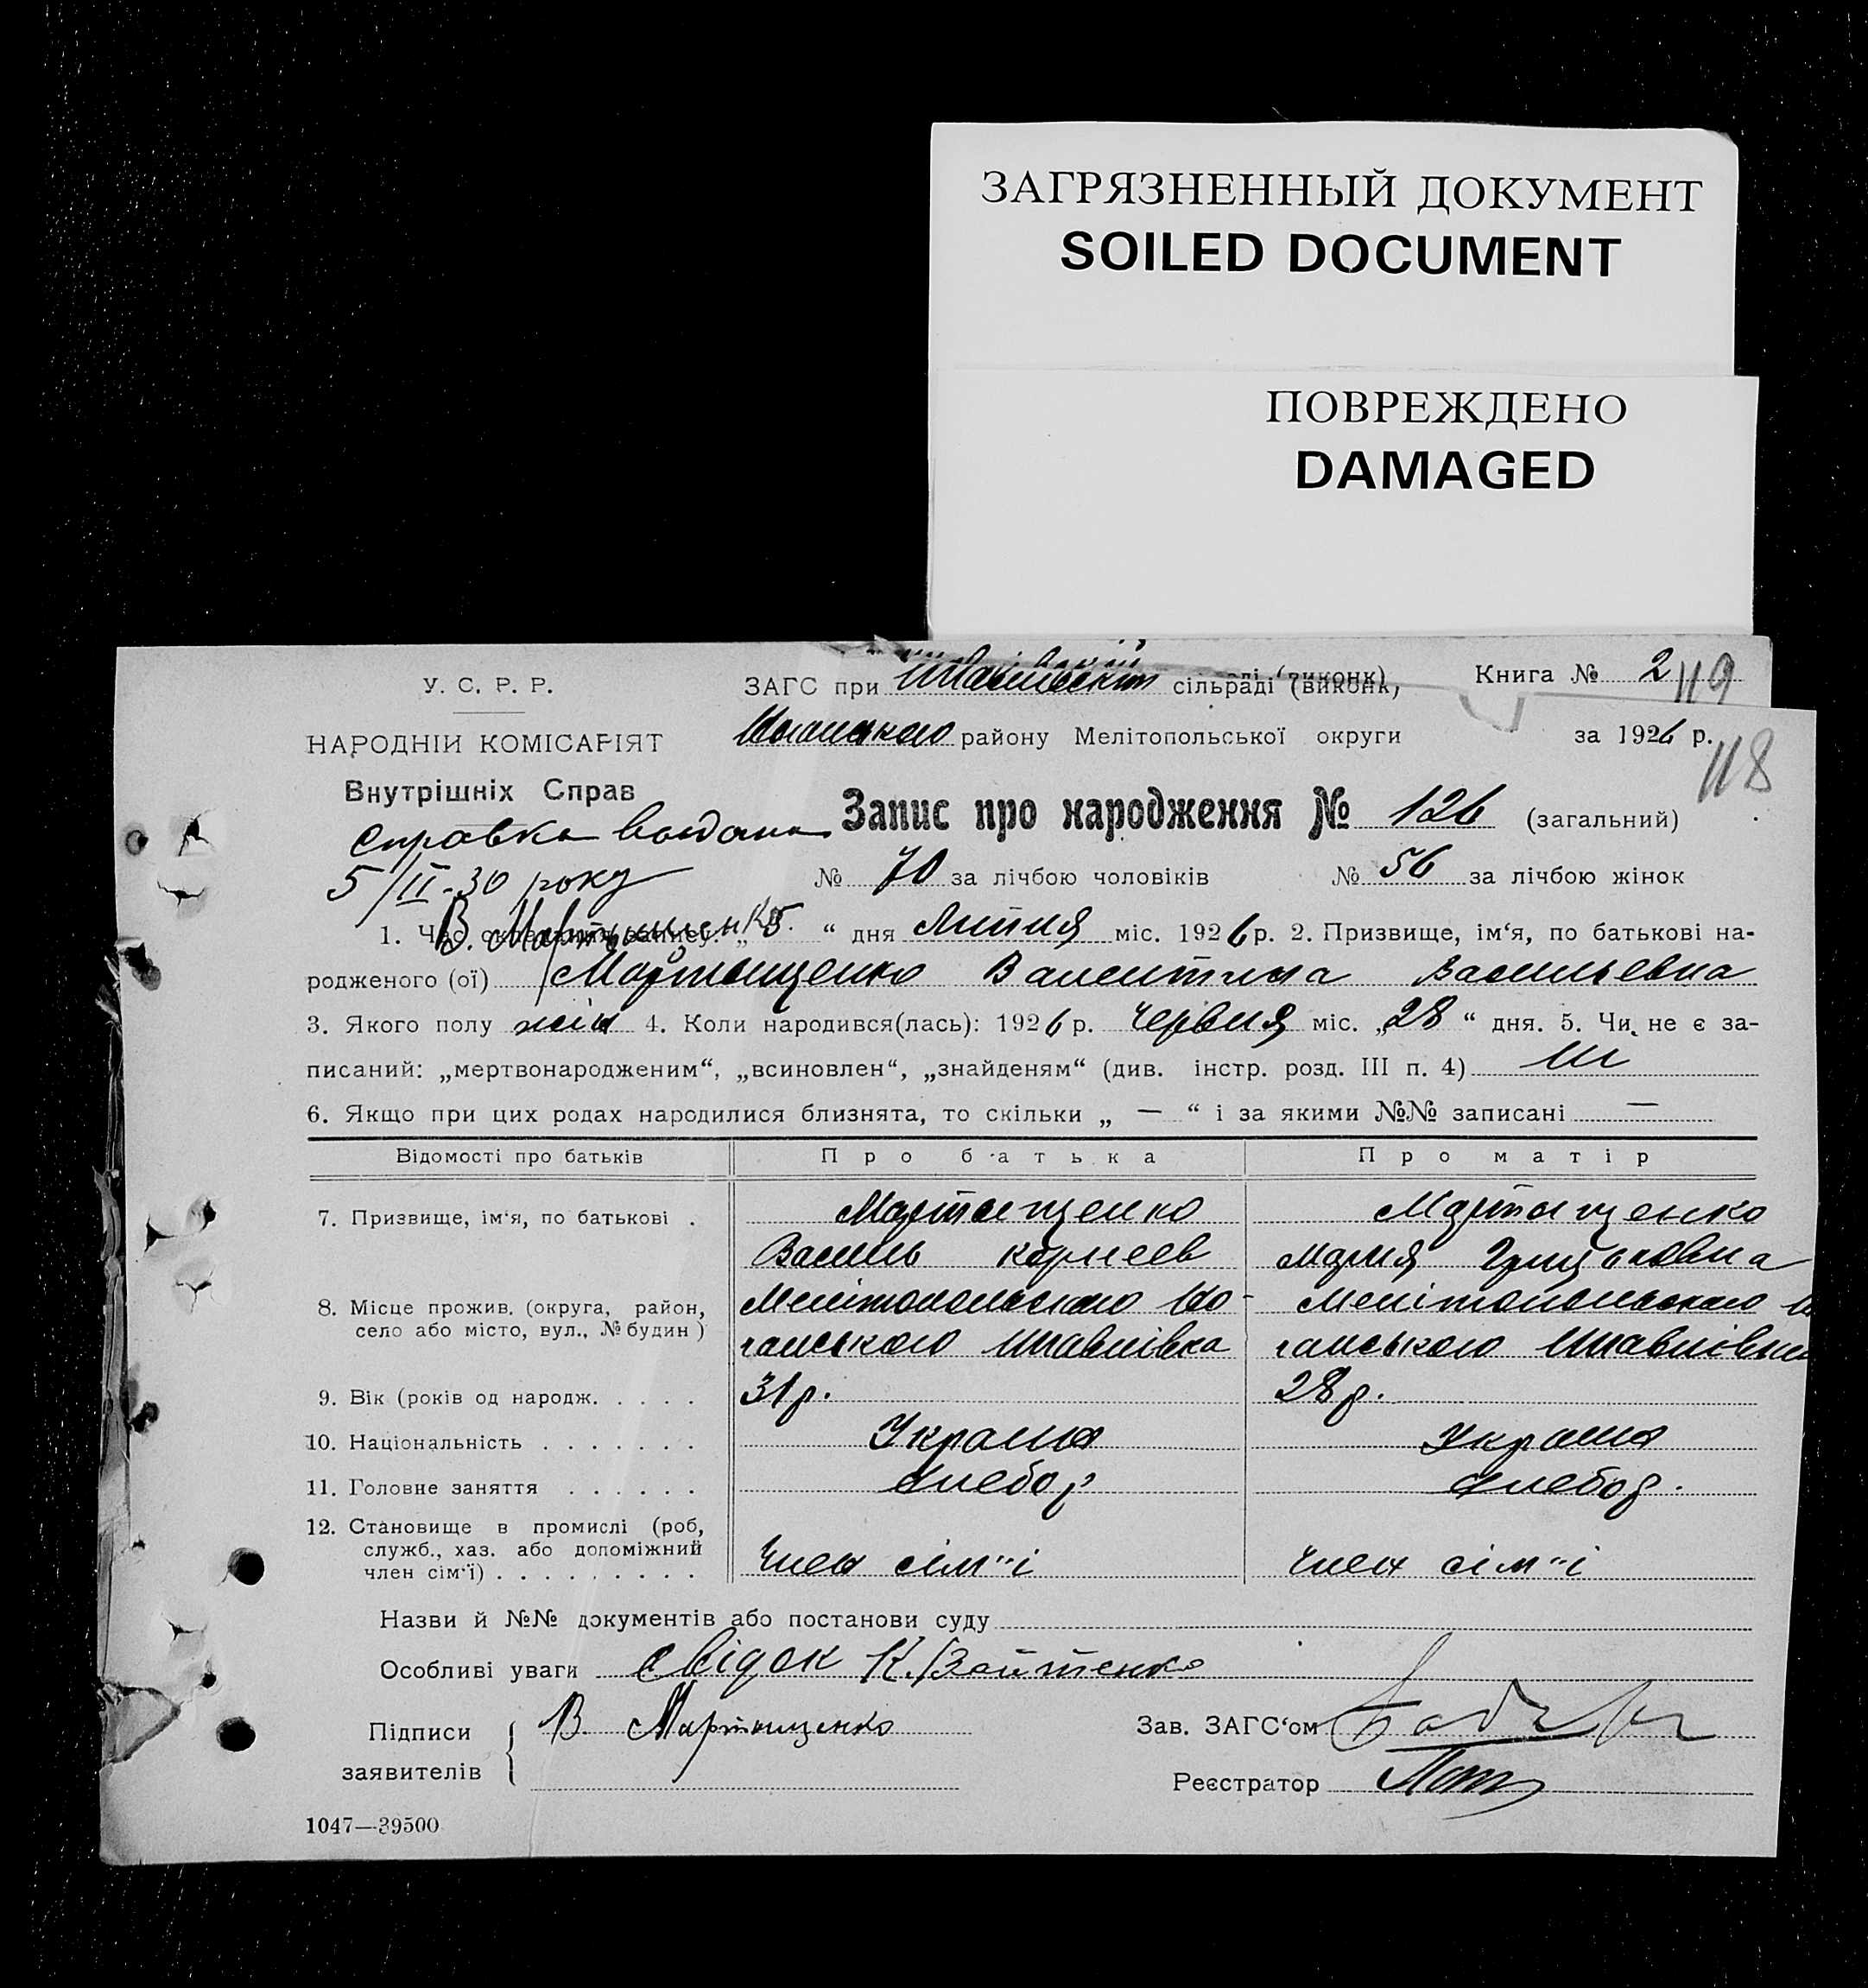 ЗАГРЯЗНЕННЫЙ ДОКУМЕНТ
SOILED DOCUMENT
ПОВРЕЖДЕНО
DAMAGED
У. С. Р. Р.
НАРОДНІЙ КОМІСАРІЯТ
Внутрішніх Справ
Справка
5/II-30 року
В. Мартыщенко
ЗАГС при сільраді (виконк)
Книга № 2 119
району Мелітопольської округи
за 1926 р.
118
Запис про народження № 126 (загальний)
№ 70 за лічбою чоловіків № 56 за лічбою жінок
1. Час складання запису: „5“ дня Липня міс. 1926 р. 2. Призвище, ім‘я, по батькові на-
родженого (ої) Мартыщенко Валентина Васильевна
3. Якого полу жін 4. Коли народився(лась): 1926 р. Червня міс. „28“ дня. 5. Чи не є за-
писаний: „мертвонародженим“, „всиновлен“, „знайденям“ (див. інстр. розд. III п. 4) ні
6. Якщо при цих родах народилися близнята, то скільки „ — “ і за якими №№ записані —
Відомості про батьків Про батька Про матір
7. Призвище, ім‘я, по батькові . Мартыщенко Мартыщенко
Василь Корнеев Мария Грицьковна
8. Місце прожив. (округа, район, село або місто, вул., № будин) Мелітопольського Мелітопольського
9. Вік (років од народж. . . . . 31 р. 28 р.
10. Національність . . . . . . . Україн Україн
11. Головне заняття . . . . . . Хлебор Хлебор.
12. Становище в промислі (роб,
служб., хаз. або допоміжний
член сім‘ї) . . . . . . . . . Член сім"ї Член сім"ї
Назви й №№ документів або постанови суду
Особливі уваги свідок К.
Підписи заявителів В. Мартыщенко
Зав. ЗАГС‘ом
Реєстратор
1047—39500